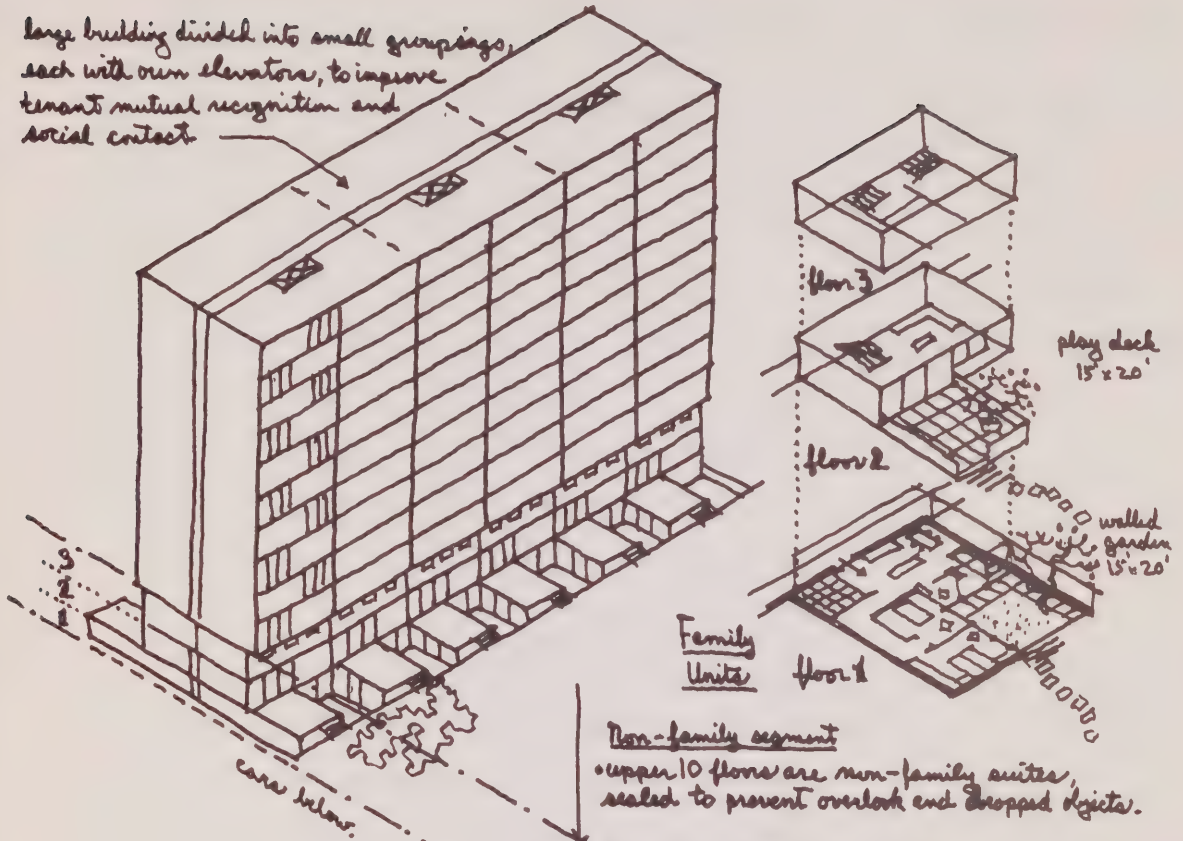 large building divided into small groupings,
each with own elevators, to improve
tenant mutual recognition and
social contact
floor 3
play deck
15'x20'
floor 2
walled
garden
15'x20'
3
2
1
Family
Units
floor 1
Non-family segment
•upper 10 floors are non-family suites,
sealed to prevent overlook and dropped objects.
cars below.